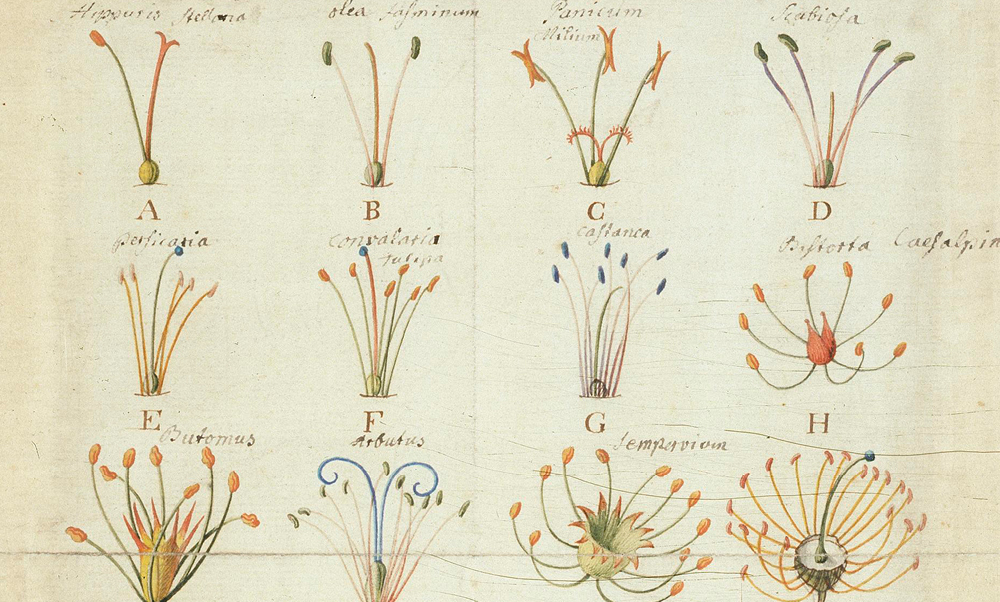 Hippuris Stellaria
olea Jasminum
Panicum
Milium
Scabiosa
A
B
C
D
Persicaria
Convalaria
Tulipa
Castanea
Bistorta Caesalpin
E
F
G
H
Butomus
Arbutus
Sempervivum